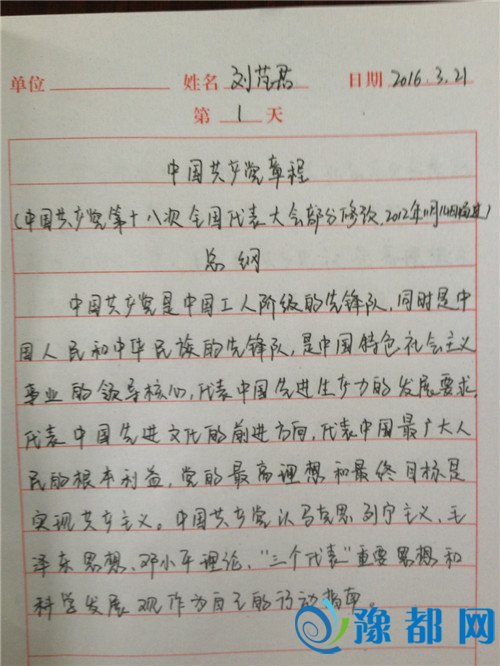 单位 姓名 刘 君 日期 2016.3.21
第 1 天
中国共产党章程
(中国共产党第十八次全国代表大会部分修改,2012年11月14日通过)
总纲
中国共产党是中国工人阶级的先锋队,同时是中
国人民和中华民族的先锋队,是中国特色社会主义
事业的领导核心,代表中国先进生产力的发展要求,
代表中国先进文化的前进方向,代表中国最广大人
民的根本利益。党的最高理想和最终目标是
实现共产主义。中国共产党以马克思列宁主义、毛
泽东思想、邓小平理论、“三个代表”重要思想和
科学发展观作为自己的行动指南。
豫都网